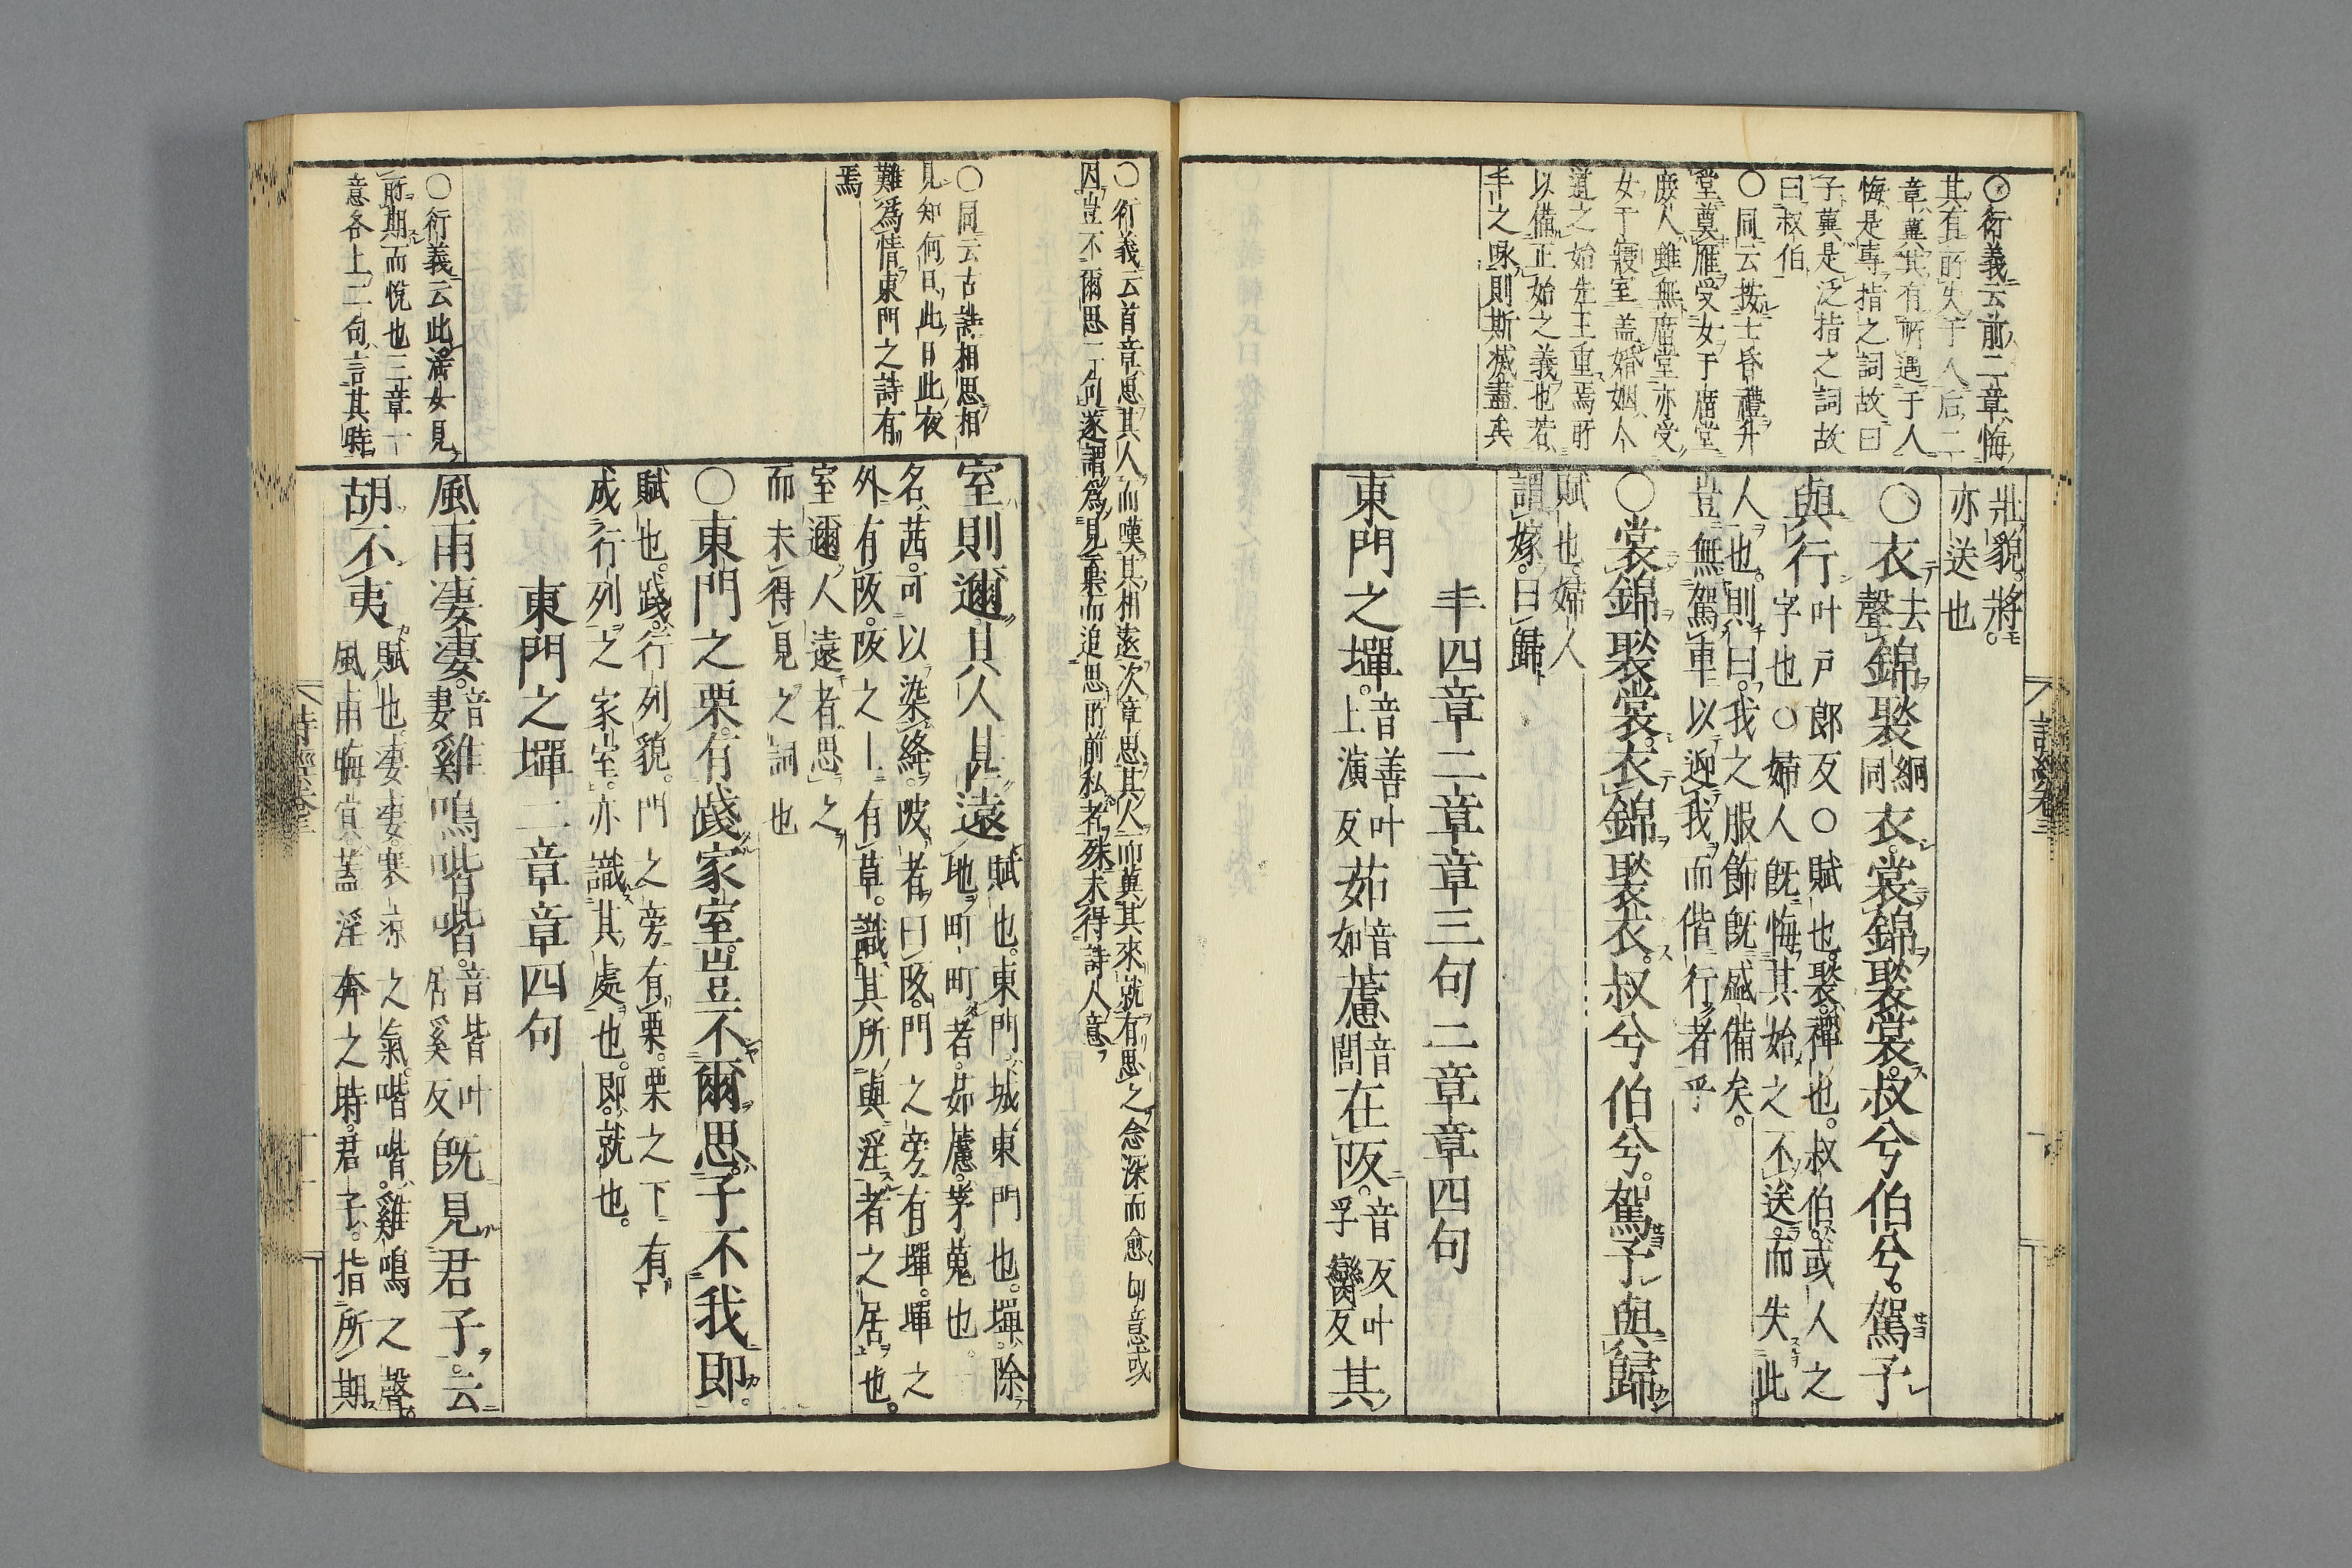 ○衍義云前二章悔
其有所失于人后二
章冀其有所遇于人
悔是專指之詞故曰
子冀是泛指之詞故
曰叔伯
○同云按士昏禮升
堂奠雁受女于廟堂
庶人雖無廟堂亦受
女于寢室蓋婚姻人
道之始先王重焉所
以備正始之義也若
丰之風則斯滅盡矣
壯貌。將。
亦送也
○衣去聲錦褧絅同衣。裳錦褧裳。叔兮伯兮。駕予
與行叶戶郎反○賦也。褧。禪也。叔伯。或人之
字也○婦人既悔其始之不送。而失此
人也。則曰。我之服飾既盛備矣。
豈無駕車以迎我而偕行者乎
○裳錦褧裳。衣錦褧衣。叔兮伯兮。駕予與歸
賦也。婦人
謂嫁。曰歸
丰四章二章章三句二章章四句
東門之墠。音善叶上演反茹音如藘音閭在阪。音反叶孚臠反其
詩經卷三
○衍義云首章思其人而嘆其相遠次章思其人而冀其來就有思之念深而愈切意或
因豈不爾思一句遂謂為見棄而追思所前私者殊未得詩人意
○同云古詩相思相
見知何日此日此夜
難為情東門之詩有
焉
室則邇。其人甚遠賦也。東門。城東門也。墠。除
地町町者。茹藘。茅蒐也。
名茜。可以染絳。陂者曰阪。門之旁有墠。墠之
外有阪。阪之上有草。識其所與淫者之居也。
室邇人遠者。思之
而未得見之詞也
○東門之栗。有踐家室。豈不爾思。子不我即。
賦也。踐。行列貌。門之旁有栗。栗之下有
成行列之家室。亦識其處也。即。就也。
東門之墠二章章四句
○衍義云此淫女見
所期而悅也三章一
意各上二句言其時
風雨凄凄。音妻雞鳴喈喈。音皆叶居奚反既見君子。云
胡不夷賦也。凄凄。寒涼之氣。喈喈。雞鳴之聲
風雨晦冥。蓋淫奔之時。君子。指所期
詩經卷三